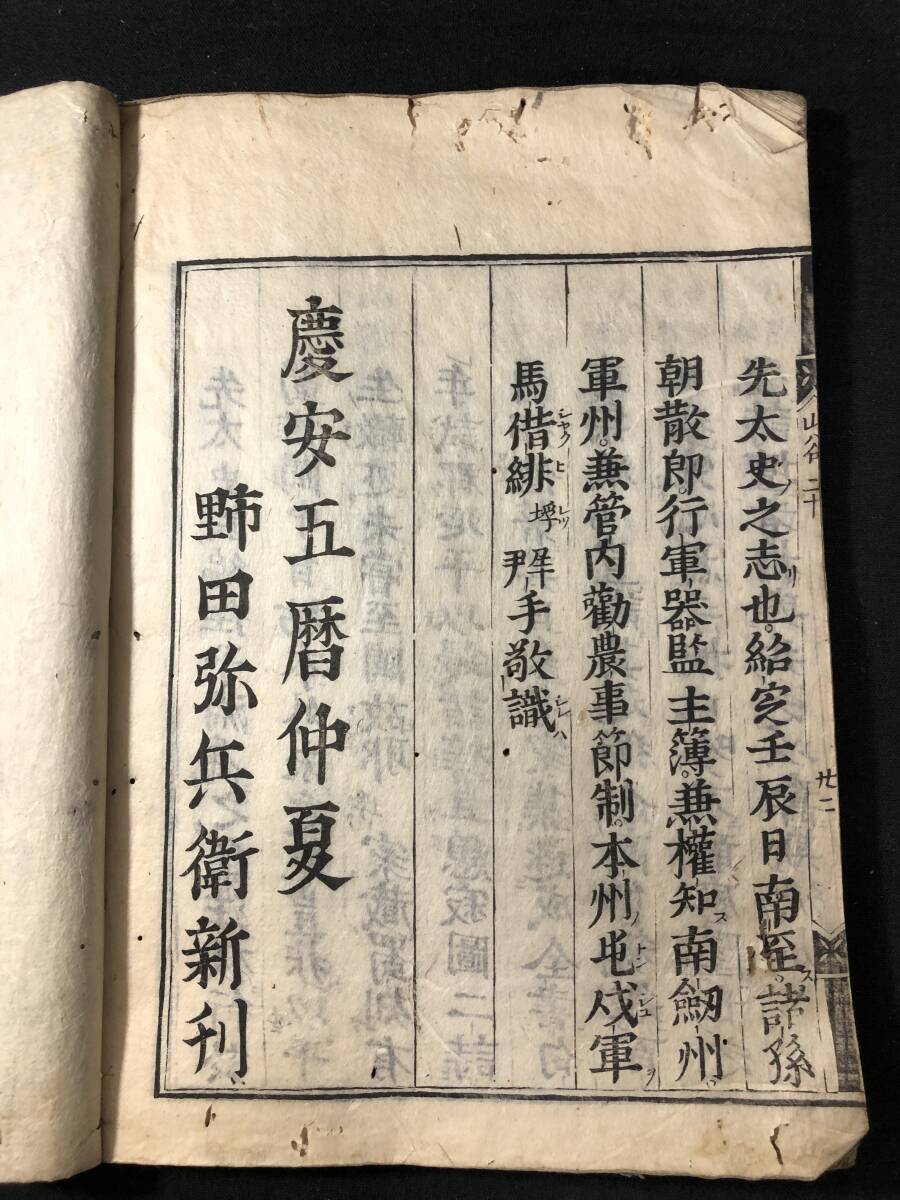 山谷 二十
廿二
先太史之志也。紹定壬辰日南至。諸孫
朝散郎。行軍器監主簿。兼權知南劔州
軍州。兼管内勸農事節制。本州屯戍軍
馬借緋 㽦 拜手敬識
慶安五曆仲夏
野田弥兵衛新刊